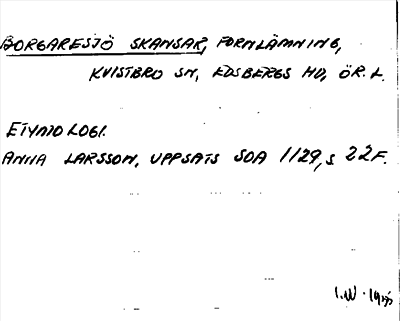 BORGARESJÖ SKANSAR, FORNLÄMNING,
KVISTBRO SN, EDSBERGS HD, ÖR. L.
ETYMOLOGI.
ANNA LARSSON, UPPSATS SOA 1129, S 22F.
I.W.